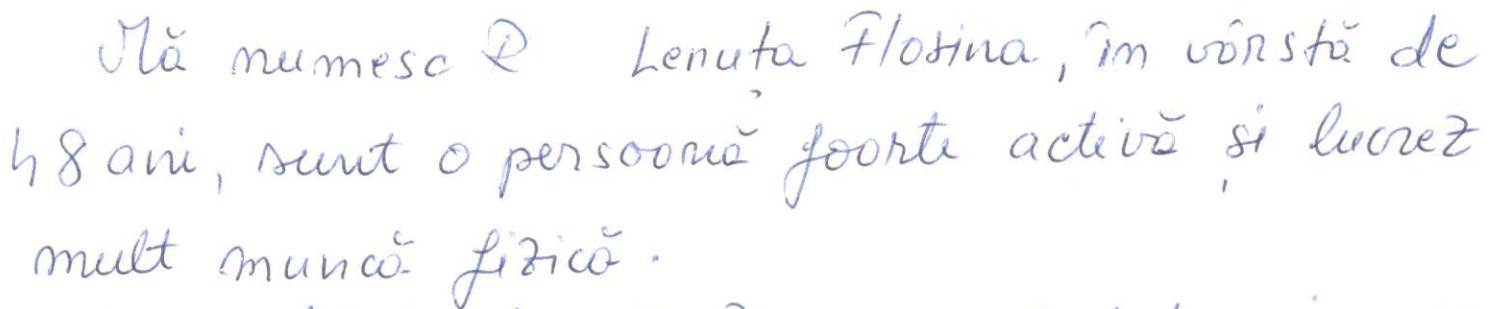 Mă numesc R Lenuța Florina, în vârstă de
48 ani, sunt o persoană foarte activă și lucrez
mult muncă fizică.